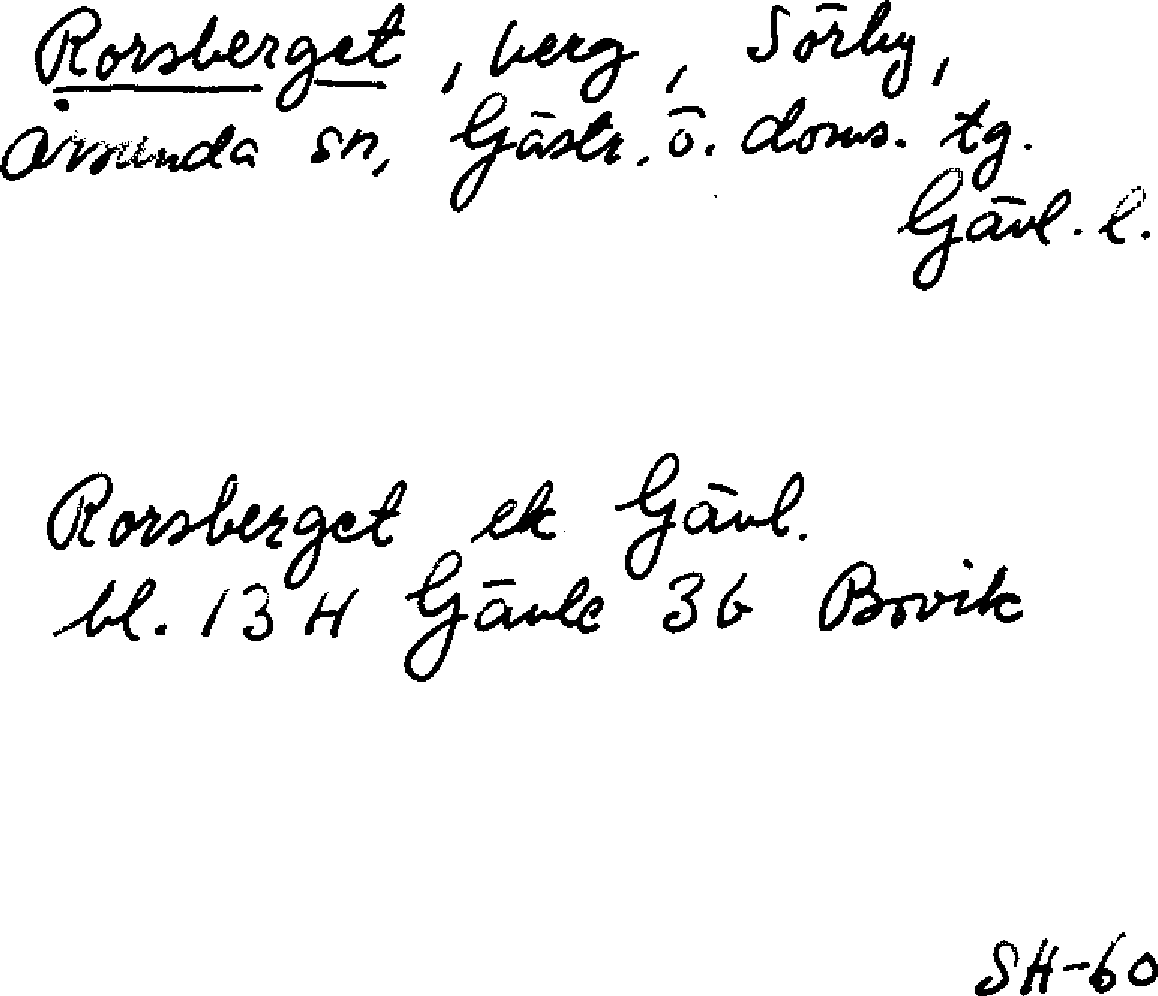 Rorsberget, berg, Sörby,
Årsunda sn, Gästr. ö. doms. tg.
Gävl. l.
Rorsberget ek Gävl.
bl. 13 H Gävle 3b Brovik
SH-60